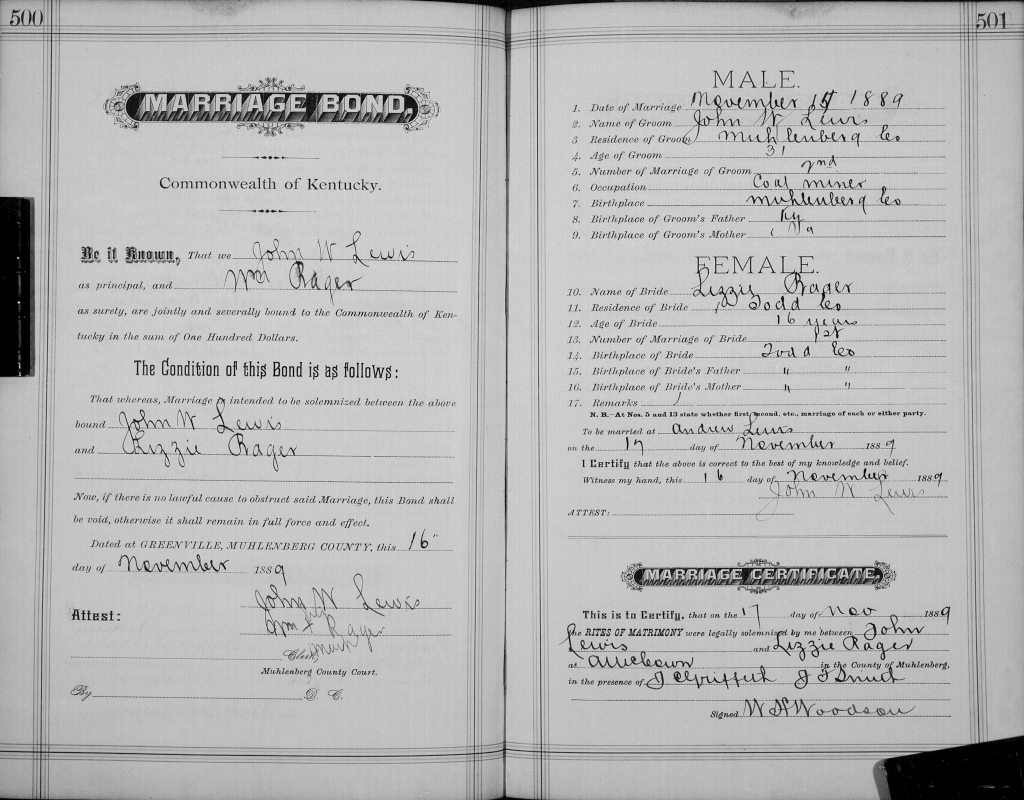 500
MARRIAGE BOND,
Commonwealth of Kentucky.
Be it Known, That we John W Lewis
as principal, and Wm Rager
as surety, are jointly and severally bound to the Commonwealth of Ken-
tucky in the sum of One Hundred Dollars.
The Condition of this Bond is as follows:
That whereas, Marriage is intended to be solemnized between the above
bound John W Lewis
and Lizzie Rager
Now, if there is no lawful cause to obstruct said Marriage, this Bond shall
be void, otherwise it shall remain in full force and effect.
Dated at GREENVILLE, MUHLENBERG COUNTY, this 16"
day of November 1889
John W Lewis
Attest:
his
Wm x Rager
mark
Clerk,
Muhlenberg County Court.
By D. C.
501
MALE.
1. Date of Marriage November 1889
2. Name of Groom John W Lewis
3 Residence of Groom Muhlenberg Co
4. Age of Groom 31
5. Number of Marriage of Groom 2nd
6. Occupation Coal miner
7. Birthplace Muhlenberg Co
8. Birthplace of Groom's Father Ky
9. Birthplace of Groom's Mother Va
FEMALE.
10. Name of Bride Lizzie Rager
11. Residence of Bride Todd Co
12. Age of Bride 16 years
13. Number of Marriage of Bride 1st
14. Birthplace of Bride Todd Co
15. Birthplace of Bride's Father " "
16. Birthplace of Bride's Mother " "
17. Remarks
N. B.—At Nos. 5 and 13 state whether first, second, etc., marriage of each or either party.
To be married at Andrew Lewis
on the 17 day of November 1889
I Certify that the above is correct to the best of my knowledge and belief.
Witness my hand, this 16 day of November 1889
John W Lewis
ATTEST:
MARRIAGE CERTIFICATE,
This is to Certify, that on the 17 day of Nov 1889
the RITES OF MATRIMONY were legally solemnized by me between John
Lewis and Lizzie Rager
at in the County of Muhlenberg,
in the presence of J
Signed W H Woodson